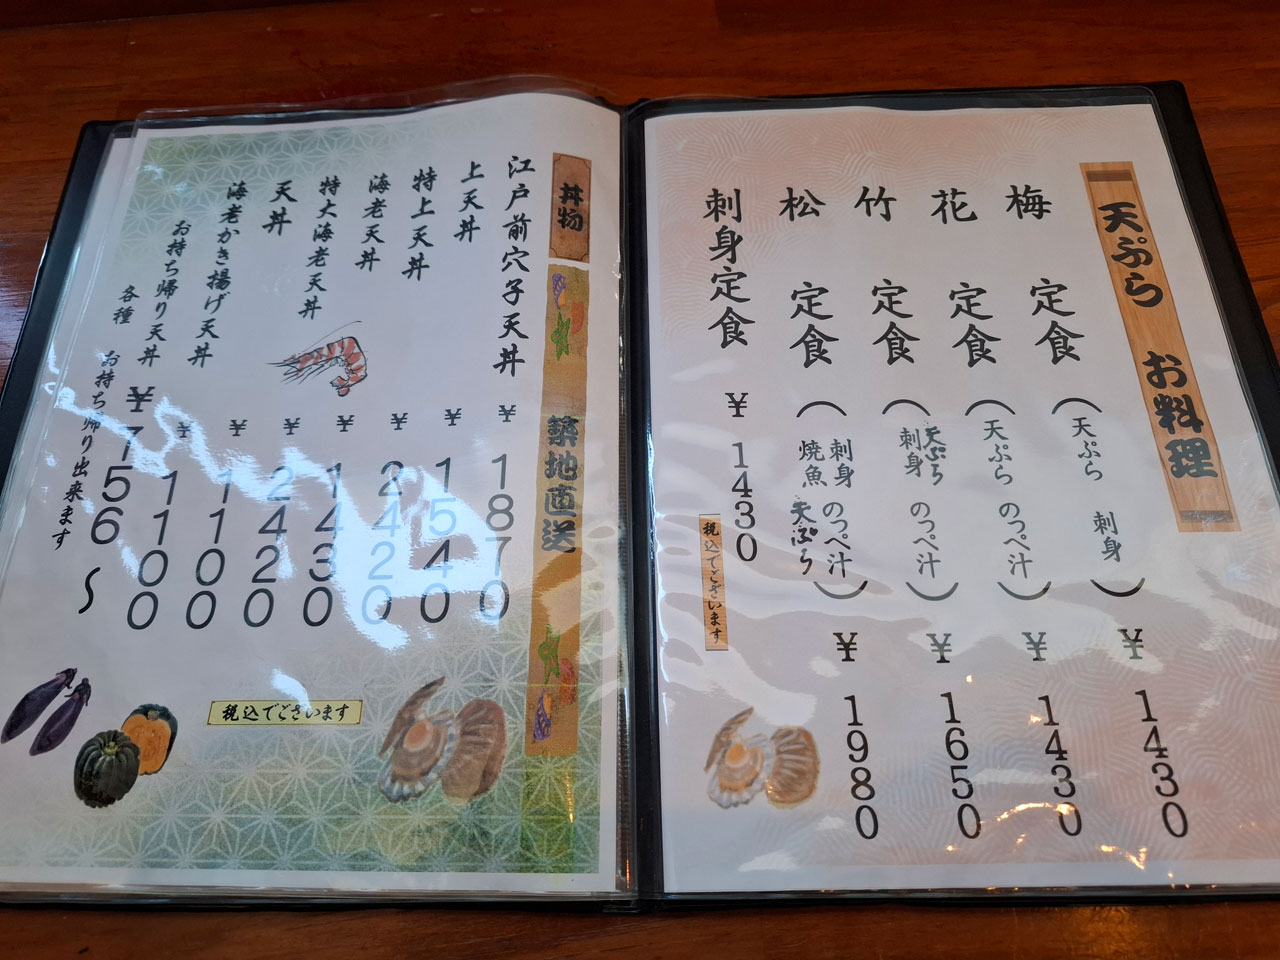 天ぷら お料理
梅 定食 (天ぷら 刺身) ¥1430
花 定食 (天ぷら のっぺ汁) ¥1430
竹 定食 (天ぷら 刺身 のっぺ汁) ¥1650
松 定食 (刺身 のっぺ汁 焼魚 天ぷら) ¥1980
刺身定食 ¥1430
税込でございます
丼物
築地直送
江戸前穴子天丼 ¥1870
上天丼 ¥1540
特上天丼 ¥2420
海老天丼 ¥1430
特大海老天丼 ¥2420
天丼 ¥1100
海老かき揚げ天丼 ¥1100
お持ち帰り天丼 ¥756〜
各種 お持ち帰り出来ます
税込でございます